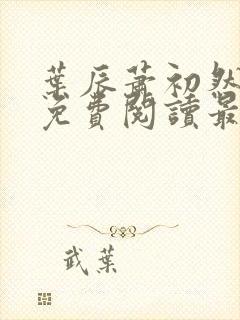 葉辰蕭初然
免費閱讀最
武葉